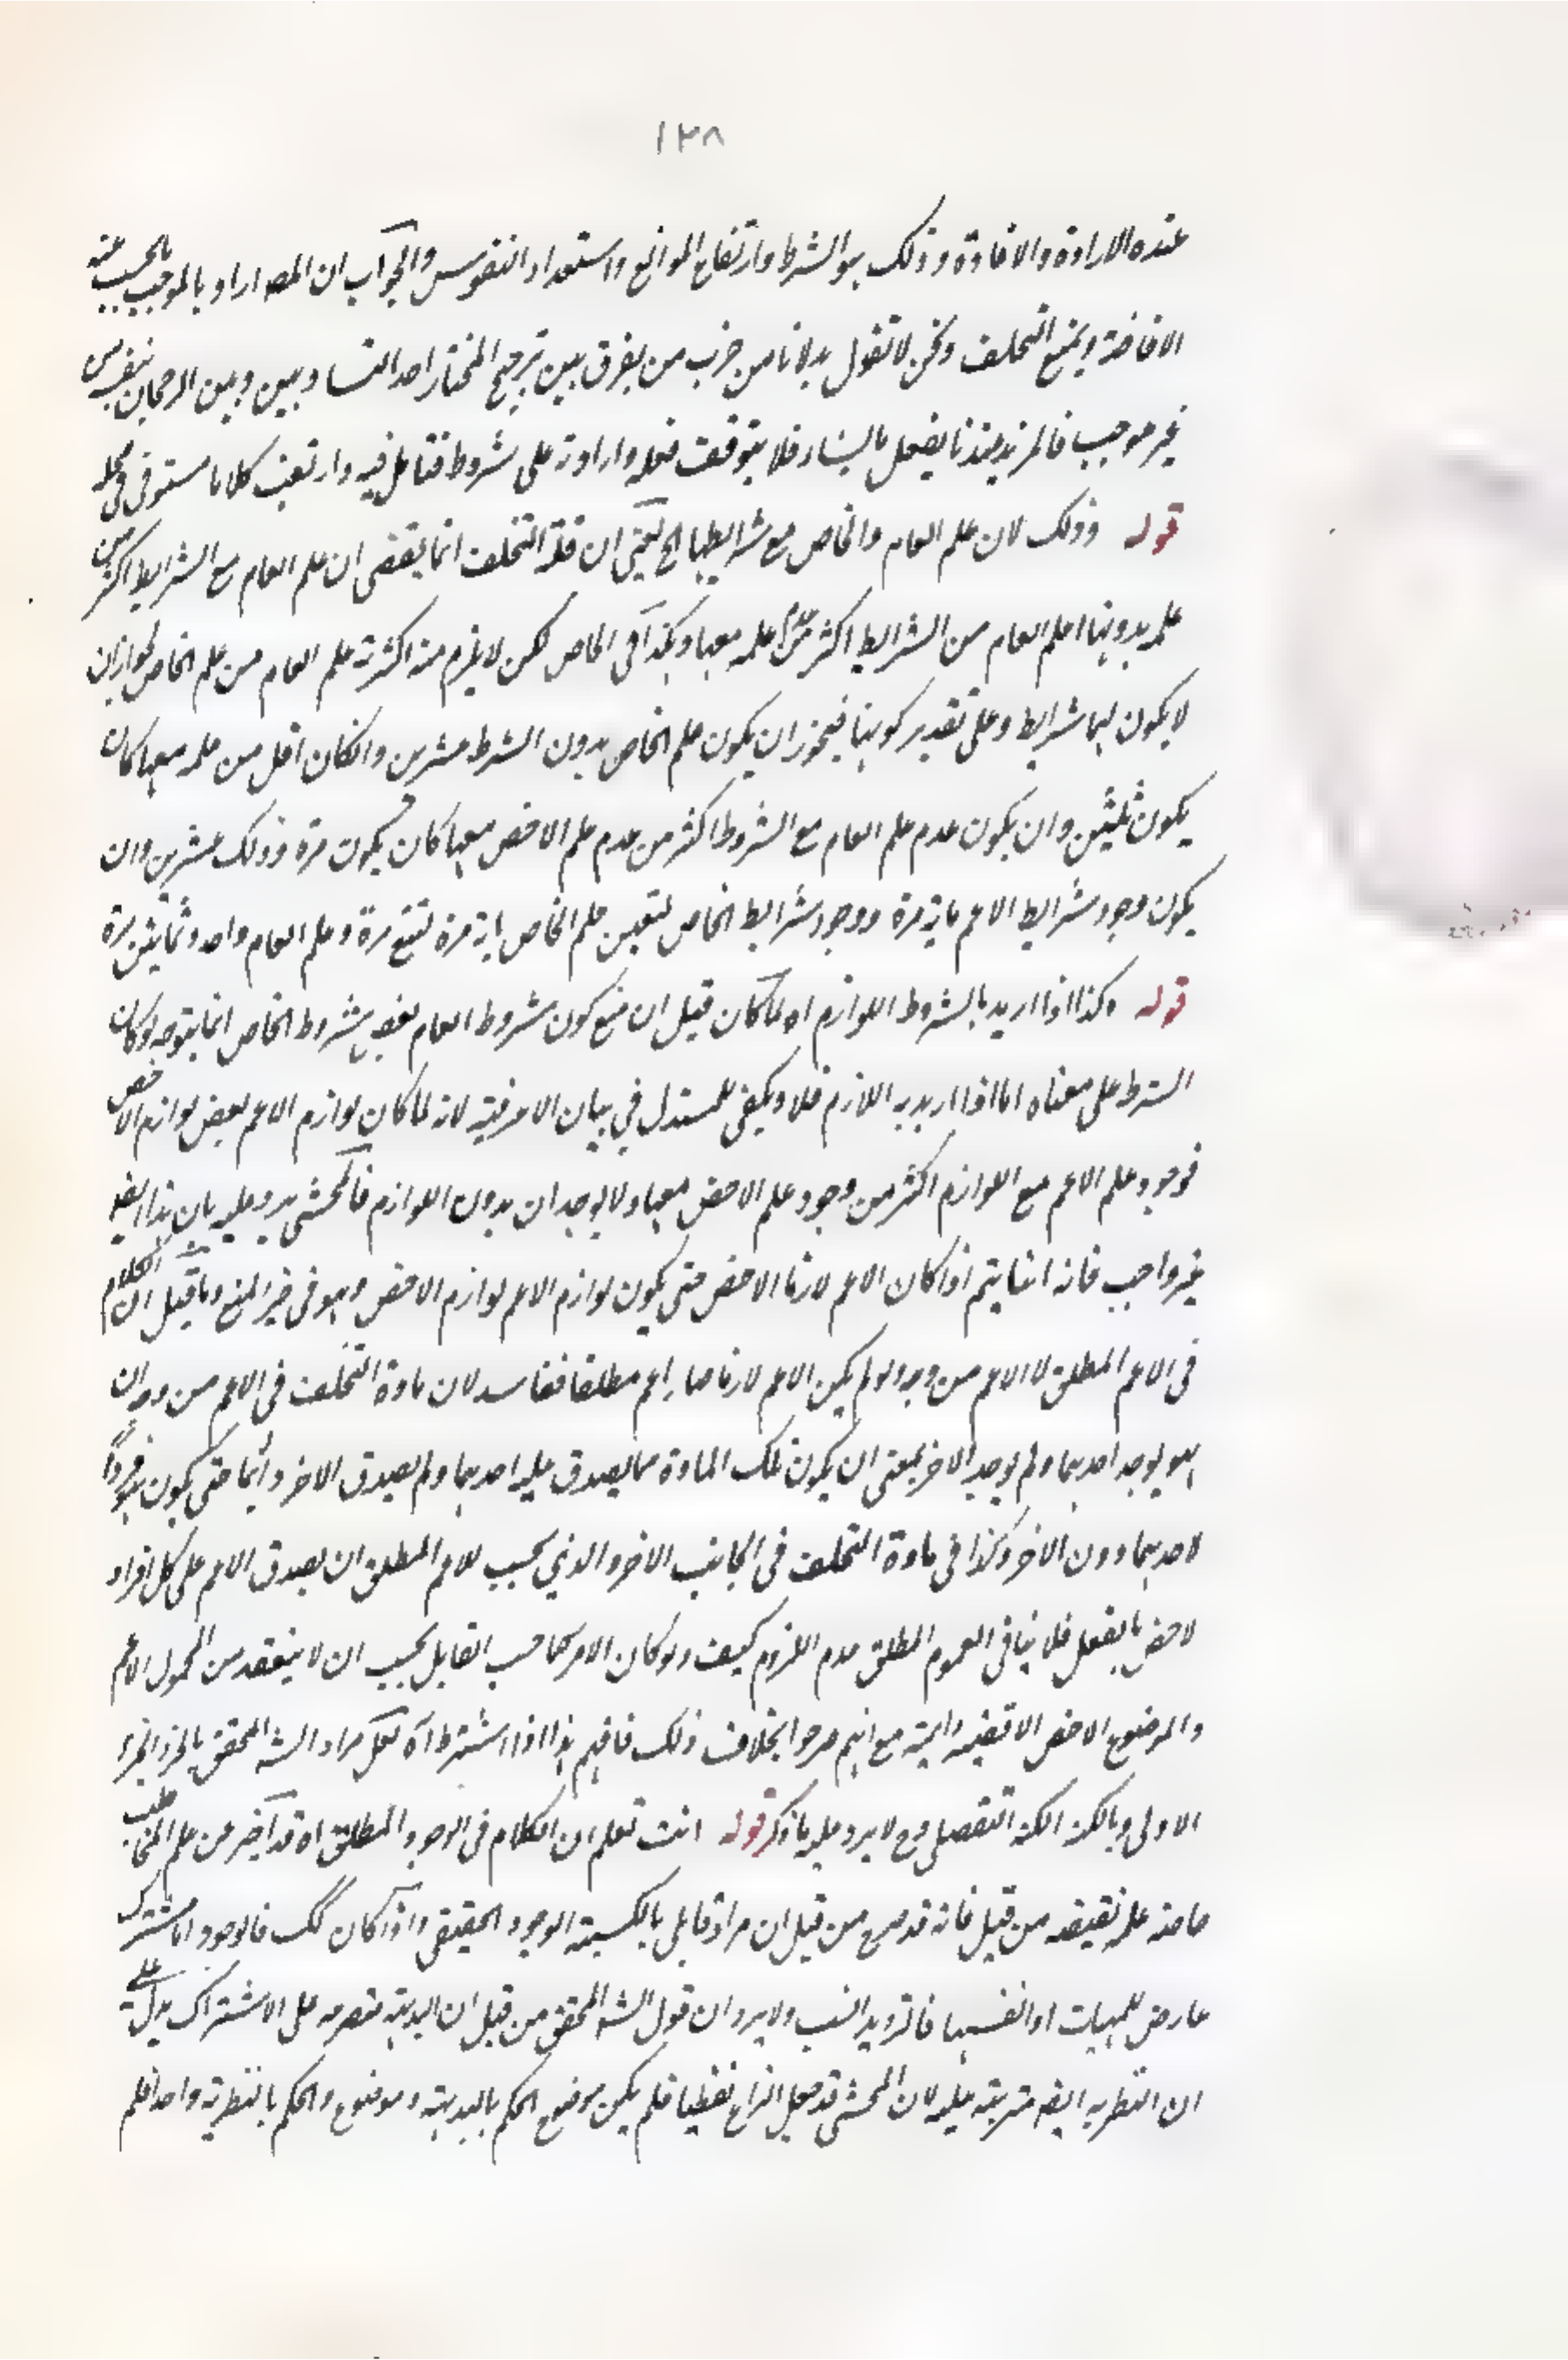 ١٢٨
عنده الارادة والافادة وذلك هو الشرط وارتفاع الموانع واستعداد النفوس والجواب ان المصه اراد بالموجب ما يجب عنه
الافاضة ويمتنع التخلف ونحن لا نقول به لانا من حزب من يفرق بين ترجيح المختار احد المتساويين وبين الرجحان بنفسه من
غير موجب فالمريد عندنا يفعل ما يشاء فلا يتوقف فعله وارادته على شروط فتامل فيه وارتقب كلاما مستوفى في محله
قوله وذلك لان علم العام والخاص مع شرايطها الخ يعني ان قلة التخلف انما يقتضى ان علم العام مع الشرايط اكثر من
علمه بدونها علم العام من الشرايط اكثر من علمه معها وهكذا في الخاص لكن لا يلزم منه اكثرية علم العام من علم الخاص لجواز ان
لا يكون لهما شرايط وعلى تقدير كونها فيجوز ان يكون علم الخاص بدون الشرط عشرين والكان اقل من علمه معها كان
يكون ثلثين وان يكون عدم علم العام مع الشروط اكثر من عدم علم الاخص معها كان يكون مرة وذلك عشرين وان
يكون وجود شرايط الاعم ماية مرة ووجود شرايط الخاص تسعين علم الخاص ماية مرة تسع مرة وعلم العام واحد وثمانين مرة
قوله وكذا اذا اريد بالشروط اللوازم اه لما كان قيل ان منع كون شروط العام بعض شروط الخاص انما يتوجه لو كان
الشرط على معناه اما اذا اريد به اللازم فلا ويكفى للمستدل في بيان الاعرفية لانه لما كان لوازم الاعم بعض لوازم الاخص
فوجود علم الاعم مع اللوازم اكثر من وجود علم الاخص معها ولا يوجدان بدون اللوازم فالمحشى يرد عليه بان هذا ايضا
غير واجب فانه انما يتم اذا كان الاعم لازما الاخص حتى يكون لوازم الاعم لوازم الاخص وهو في خير المنع وما قيل ان الكلام
في الاعم المطلق لا الاعم من وجه ولو لم يكن الاعم لازما صار اعم مطلقا ففاسد لان مادة التخلف في الاعم من وجه ان
هو يوجد احدهما ولم يوجد الاخر بمعنى ان يكون تلك المادة مما يصدق عليه احدهما ولم يصدق الاخر دائما حتى يكون هو فردا
لاحدهما دون الاخر وكذا في مادة التخلف في الجانب الاخر والذي يجب للاعم المطلق ان يصدق الاعم على كل افراد
لاخص بالفعل فلا ينافى العموم المطلق عدم اللزوم كيف ولو كان الامر كما حسب القايل يجب ان لا ينعقد من المحمول الاعم
والموضوع الاخص الا قضية دايمة مع انهم صرحوا بخلاف ذلك فافهم هذا اذا اشترط اه لعل مراد الشه المحقق بالجزء الجزء
الاولى وبالكنه الكنه التفصيلى وح لا يرد عليه ما ذكر قوله انت تعلم ان الكلام في الوجود المطلق اه قد اخبر عن علم المخاطب
حاصه علم نقيضه من قبل فانه قد صرح من قبل ان مراد قايلى بالكسبية الوجود الحقيقى واذا كان كك فالوجود اما مشترك
عارض للمهيات او انفسها فالترديد انسب ولا يرد ان قول الشه المحقق من قبل ان البديهة متفرعه على الاشتراك يدل على
ان النظريه ايضه مترتبة عليه لان المحشى قد جعل النزاع لفظيا فلم يكن موضوع الحكم بالبديهة وموضوع والحكم بالنظرية واحدا فلم